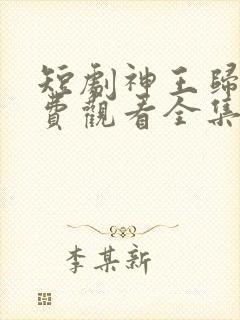 短劇神王歸
費觀看全集
李某新